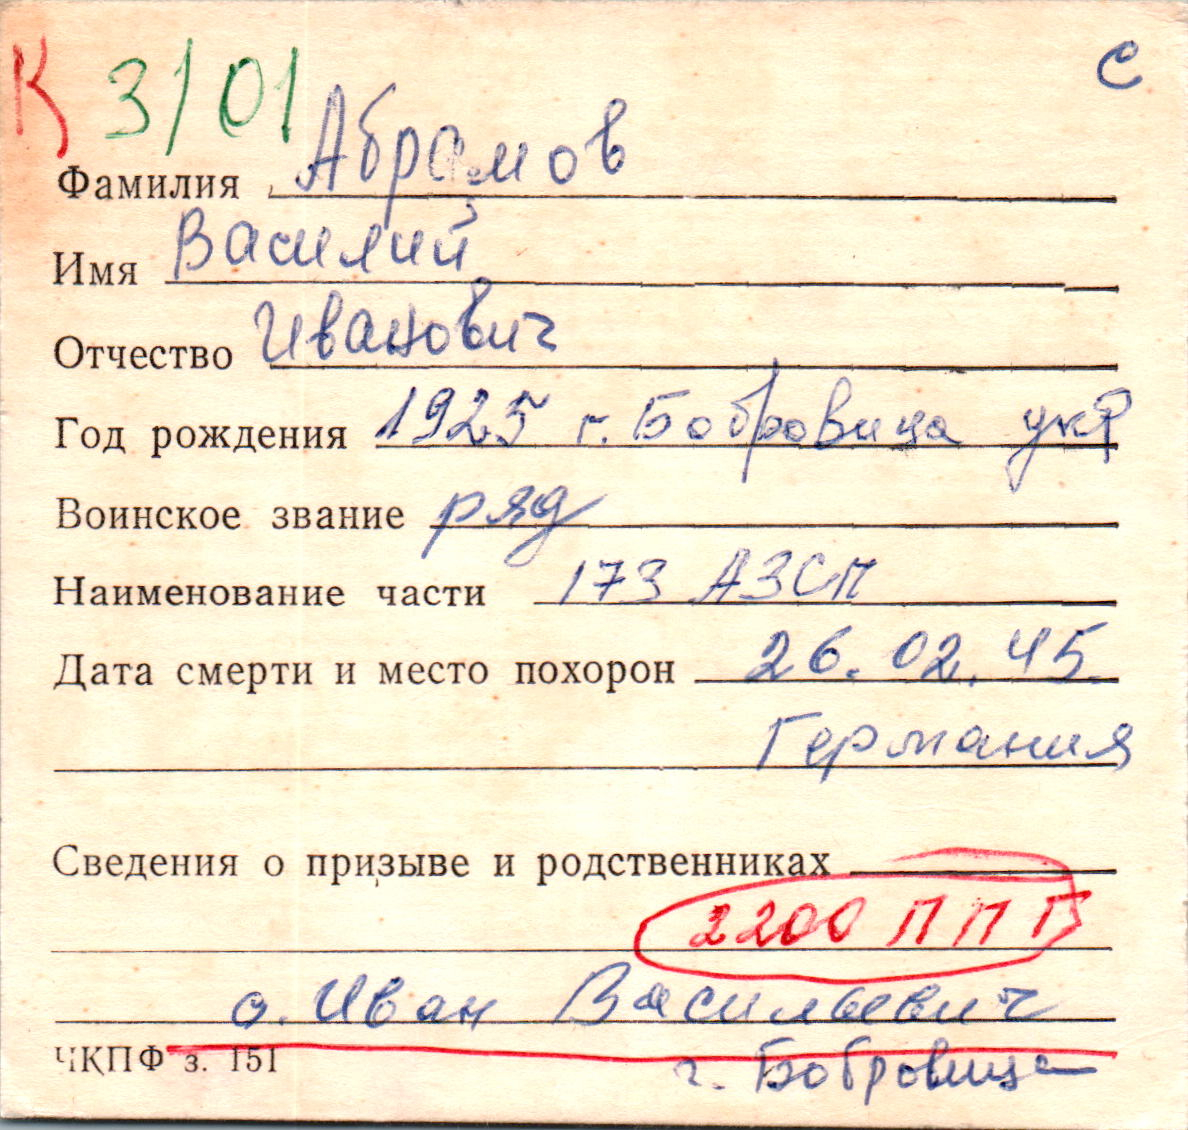 К 3/01 с
Фамилия Абрамов
Имя Василий
Отчество Иванович
Год рождения 1925 г. Бобровица укр
Воинское звание ряд
Наименование части 173 АЗСП
Дата смерти и место похорон 26.02.45.
Германия
Сведения о призыве и родственниках
2200 ППГ
о. Иван Васильевич
ЧКПФ з. 151 г. Бобровица